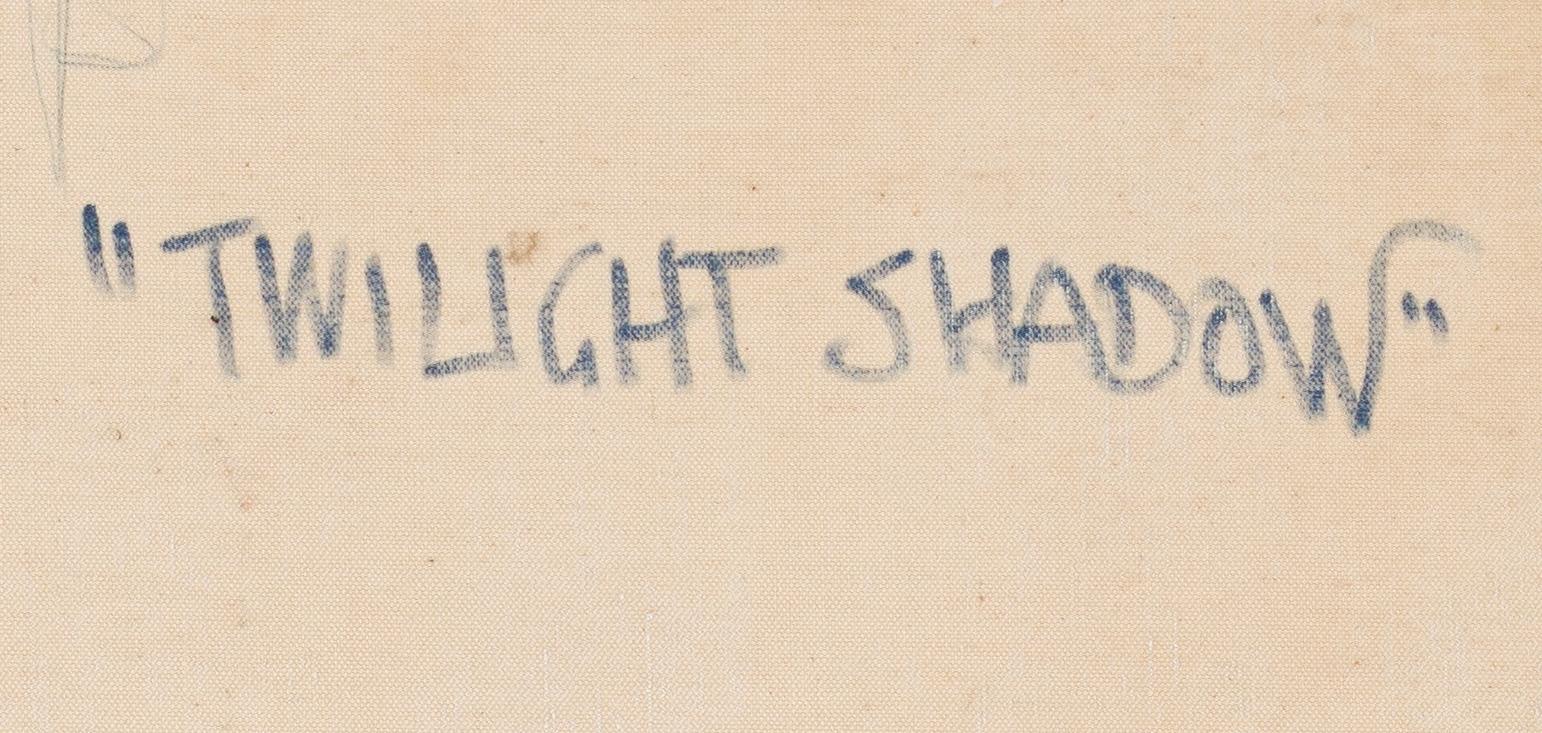 "TWILIGHT SHADOW"